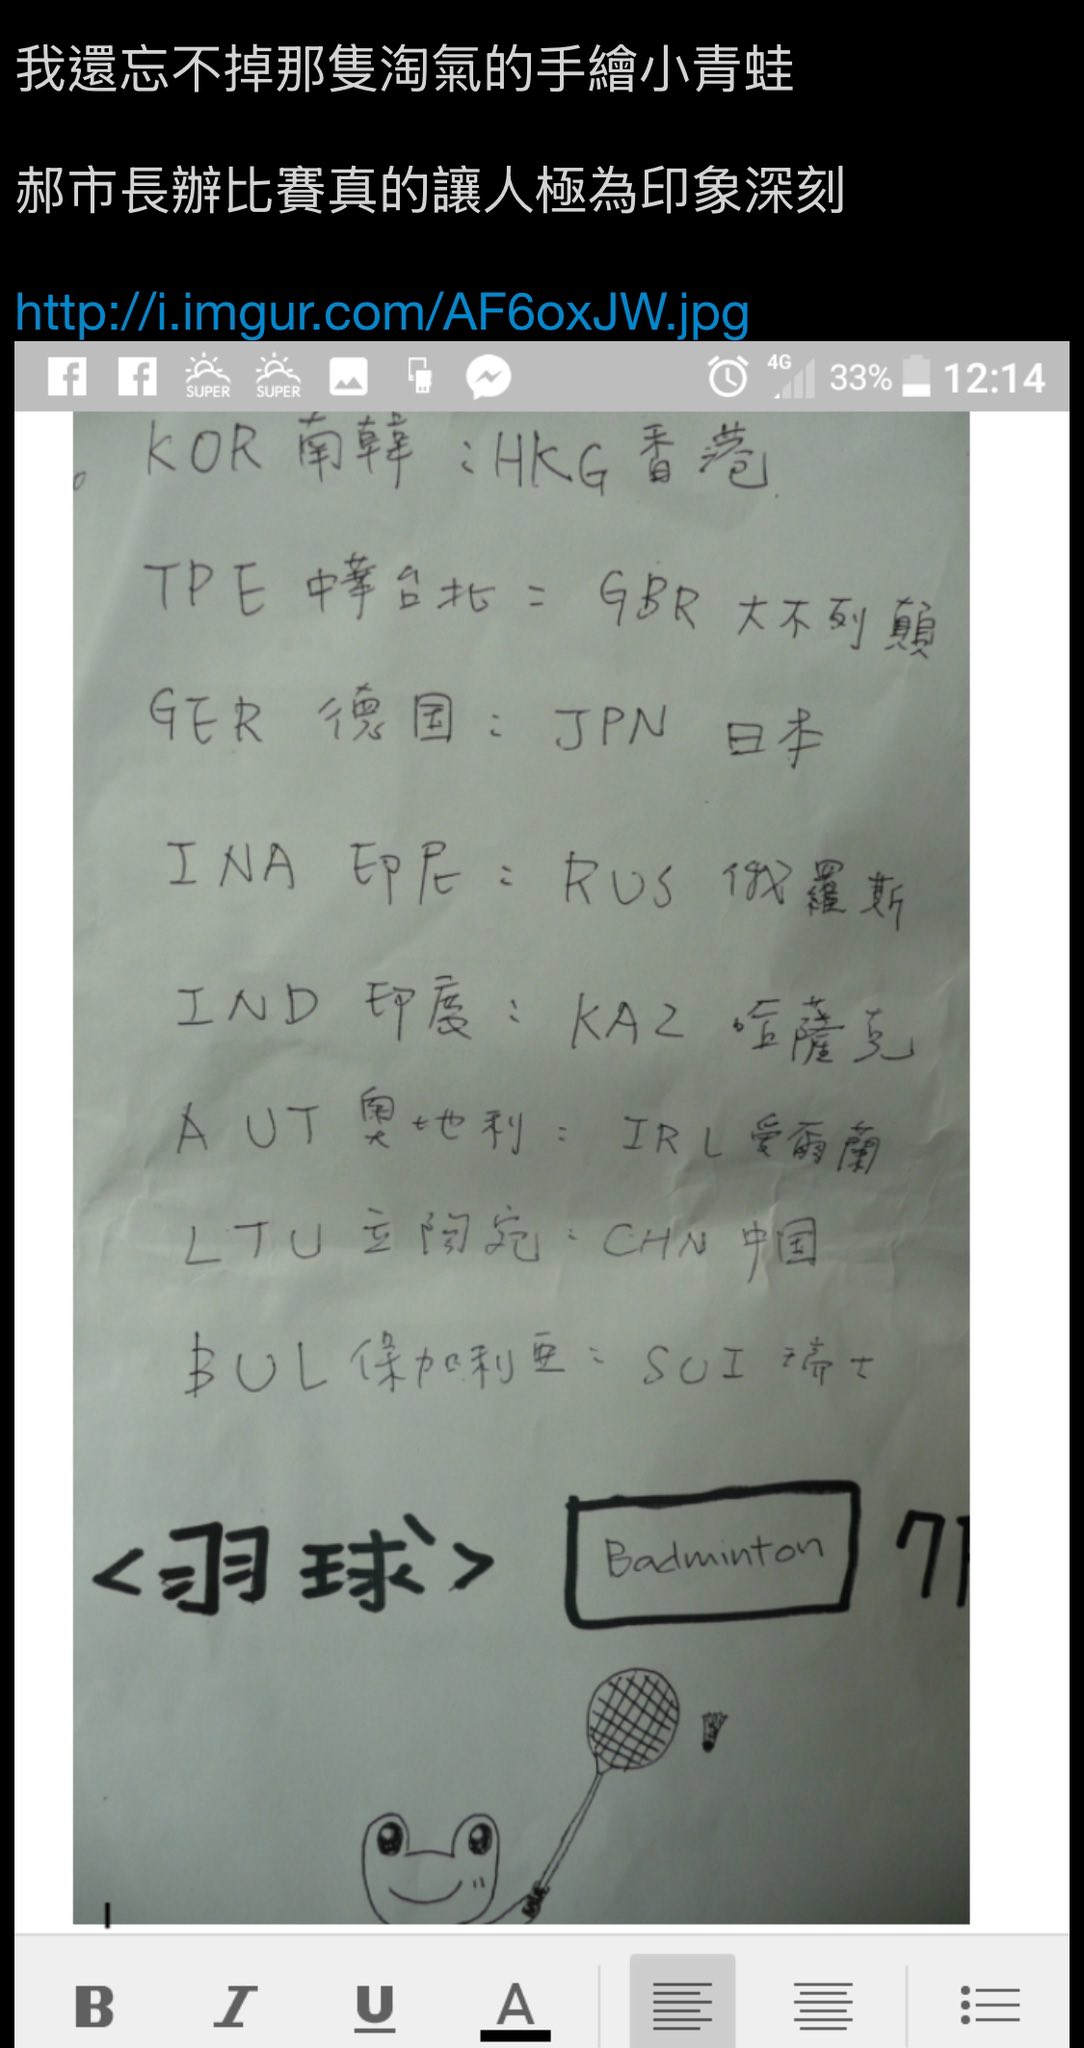 我還忘不掉那隻淘氣的手繪小青蛙
郝市長辦比賽真的讓人極為印象深刻
http://i.imgur.com/AF6oxJW.jpg
SUPER SUPER 4G 33% 12:14
KOR 南韓 : HKG 香港
TPE 中華台北 : GBR 大不列顛
GER 德国 : JPN 日本
INA 印尼 : RUS 俄羅斯
IND 印度 : KAZ 哈薩克
AUT 奧地利 : IRL 愛爾蘭
LTU 立陶宛 : CHN 中国
BUL 保加利亞 : SUI 瑞士
<羽球> Badminton
B I U A